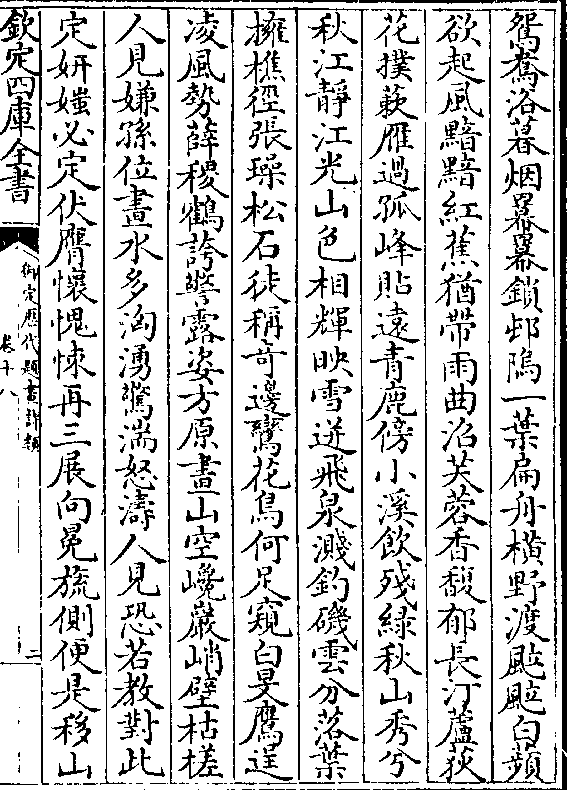 鴛鴦落暮烟羃羃鎖邨隖一葉扁舟橫野渡颭颭白蘋
欲起風黯黯紅蕉猶帶雨曲沼芙蓉香馥郁長汀蘆荻
花撲蔌雁過孤峰貼遠青鹿傍小溪飲殘綠秋山秀兮
秋江靜江光山色相輝映雪迸飛泉濺釣磯雲分落葉
擁樵徑張璪松石徒稱奇邊鸞花鳥何足窺白旻鷹逞
凌風勢薛稷鶴誇警露姿方原畫山空巉巖峭壁枯槎
人見嫌孫位畫水多洶湧驚湍怒濤人見恐若教對此
定妍媸必定伏膺懷愧悚再三展向冕旒側便是移山
欽定四庫全書
御定歷代題畫詩類
卷十八
二